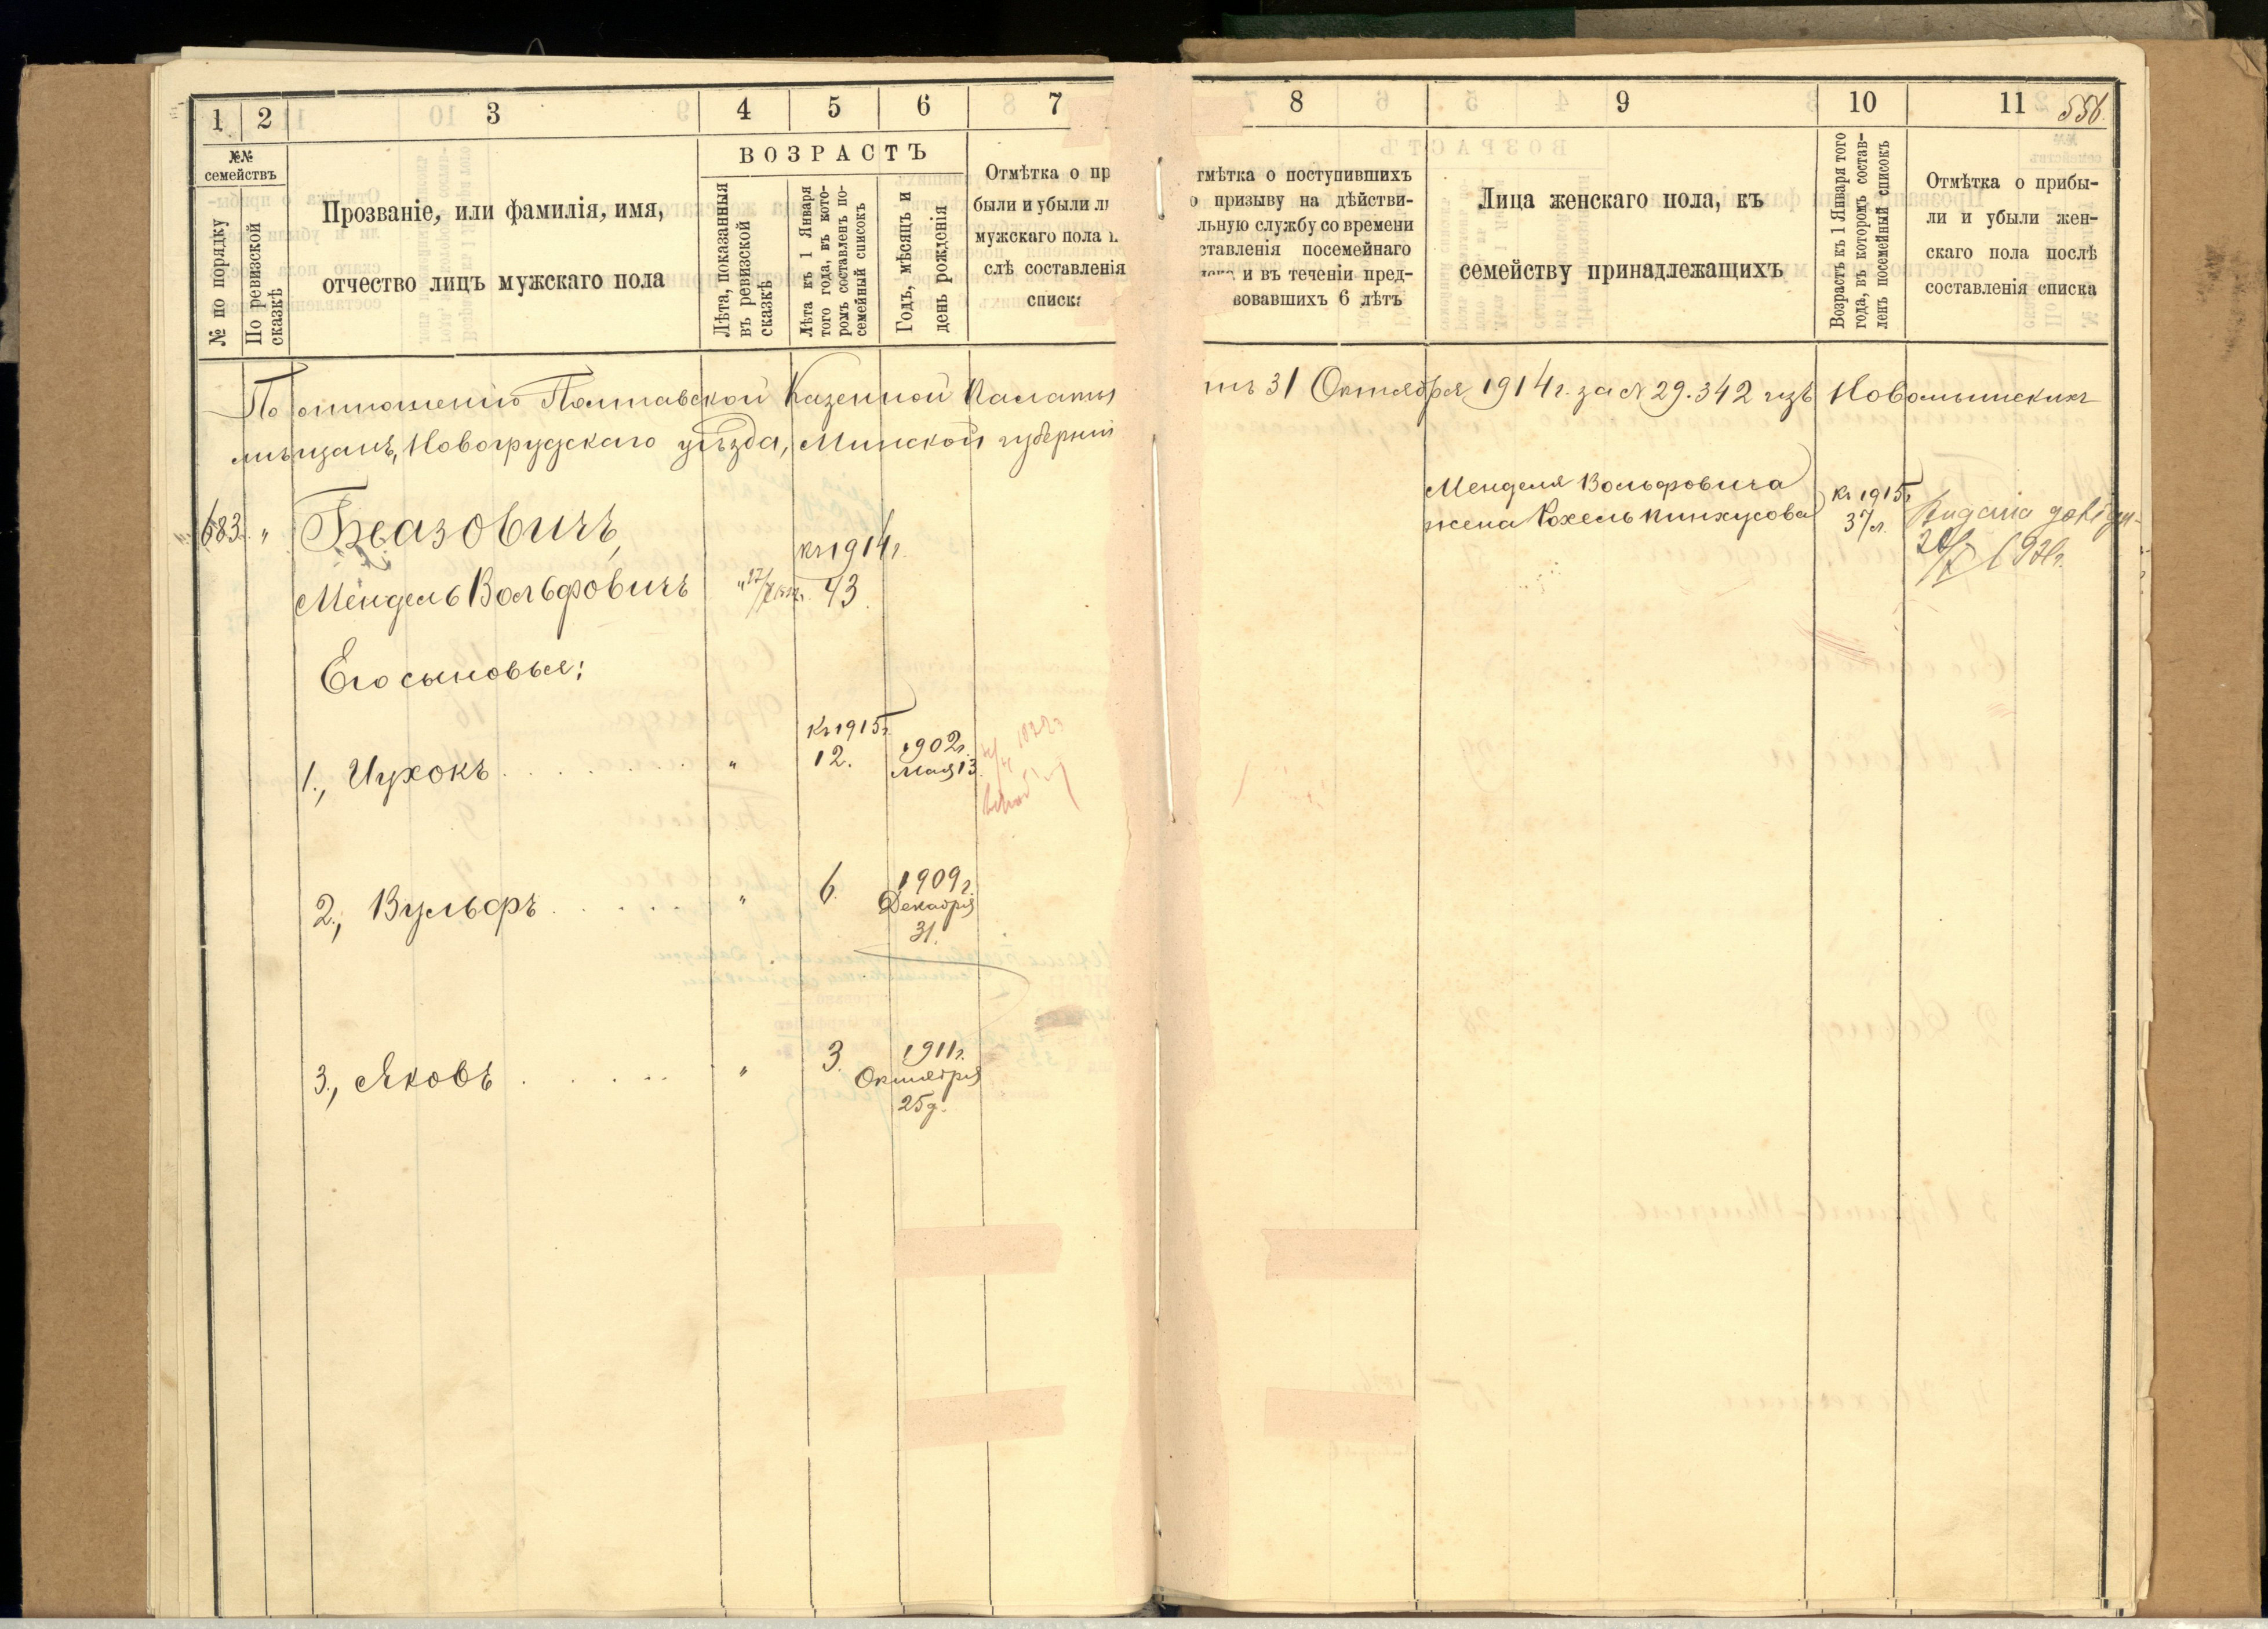 1 2 3 4 5 6 7
№№ семействъ
№ по порядку
По ревизской сказкѣ
Прозваніе, или фамилія, имя,
отчество лицъ мужскаго пола
ВОЗРАСТЪ
Лѣта, показанныя
въ ревизской
сказкѣ
Лѣта къ 1 Января
того года, въ кото-
ромъ составленъ по-
семейный списокъ
Годъ, мѣсяцъ и
день рожденія
Отмѣтка о пр
были и убыли ли
мужскаго пола п
слѣ составленія
списка
8 9 10 11 556.
тмѣтка о поступившихъ
о призыву на дѣйстви-
льную службу со времени
ставленія посемейнаго
и въ теченіи пред-
вовавшихъ 6 лѣтъ
Лица женскаго пола, къ
семейству принадлежащихъ
Возрастъ къ 1 Января того
года, въ которомъ состав-
ленъ посемейный списокъ
Отмѣтка о прибы-
ли и убыли жен-
скаго пола послѣ
составленія списка
По отношенію Полтавской Казенной Палаты
отъ 31 Октября 1914 г. за № 29.342 изъ Новомышскихъ
мѣщанъ, Новогрудскаго уѣзда, Минской губерніи
683. " Беазовичъ,
къ 1914 г.
Мендель Вольфовичъ 43
Его сыновья:
къ 1915 г.
1., Ицхокъ " 12. 1902 г.
Мая 13
2., Вульфъ " 6. 1909 г.
Декабря
31.
3., Яковъ " 3. 1911 г.
Октября
25 д.
Менделя Вольфовича
жена Рохель Пинхусова
къ 1915 г.
37 л.